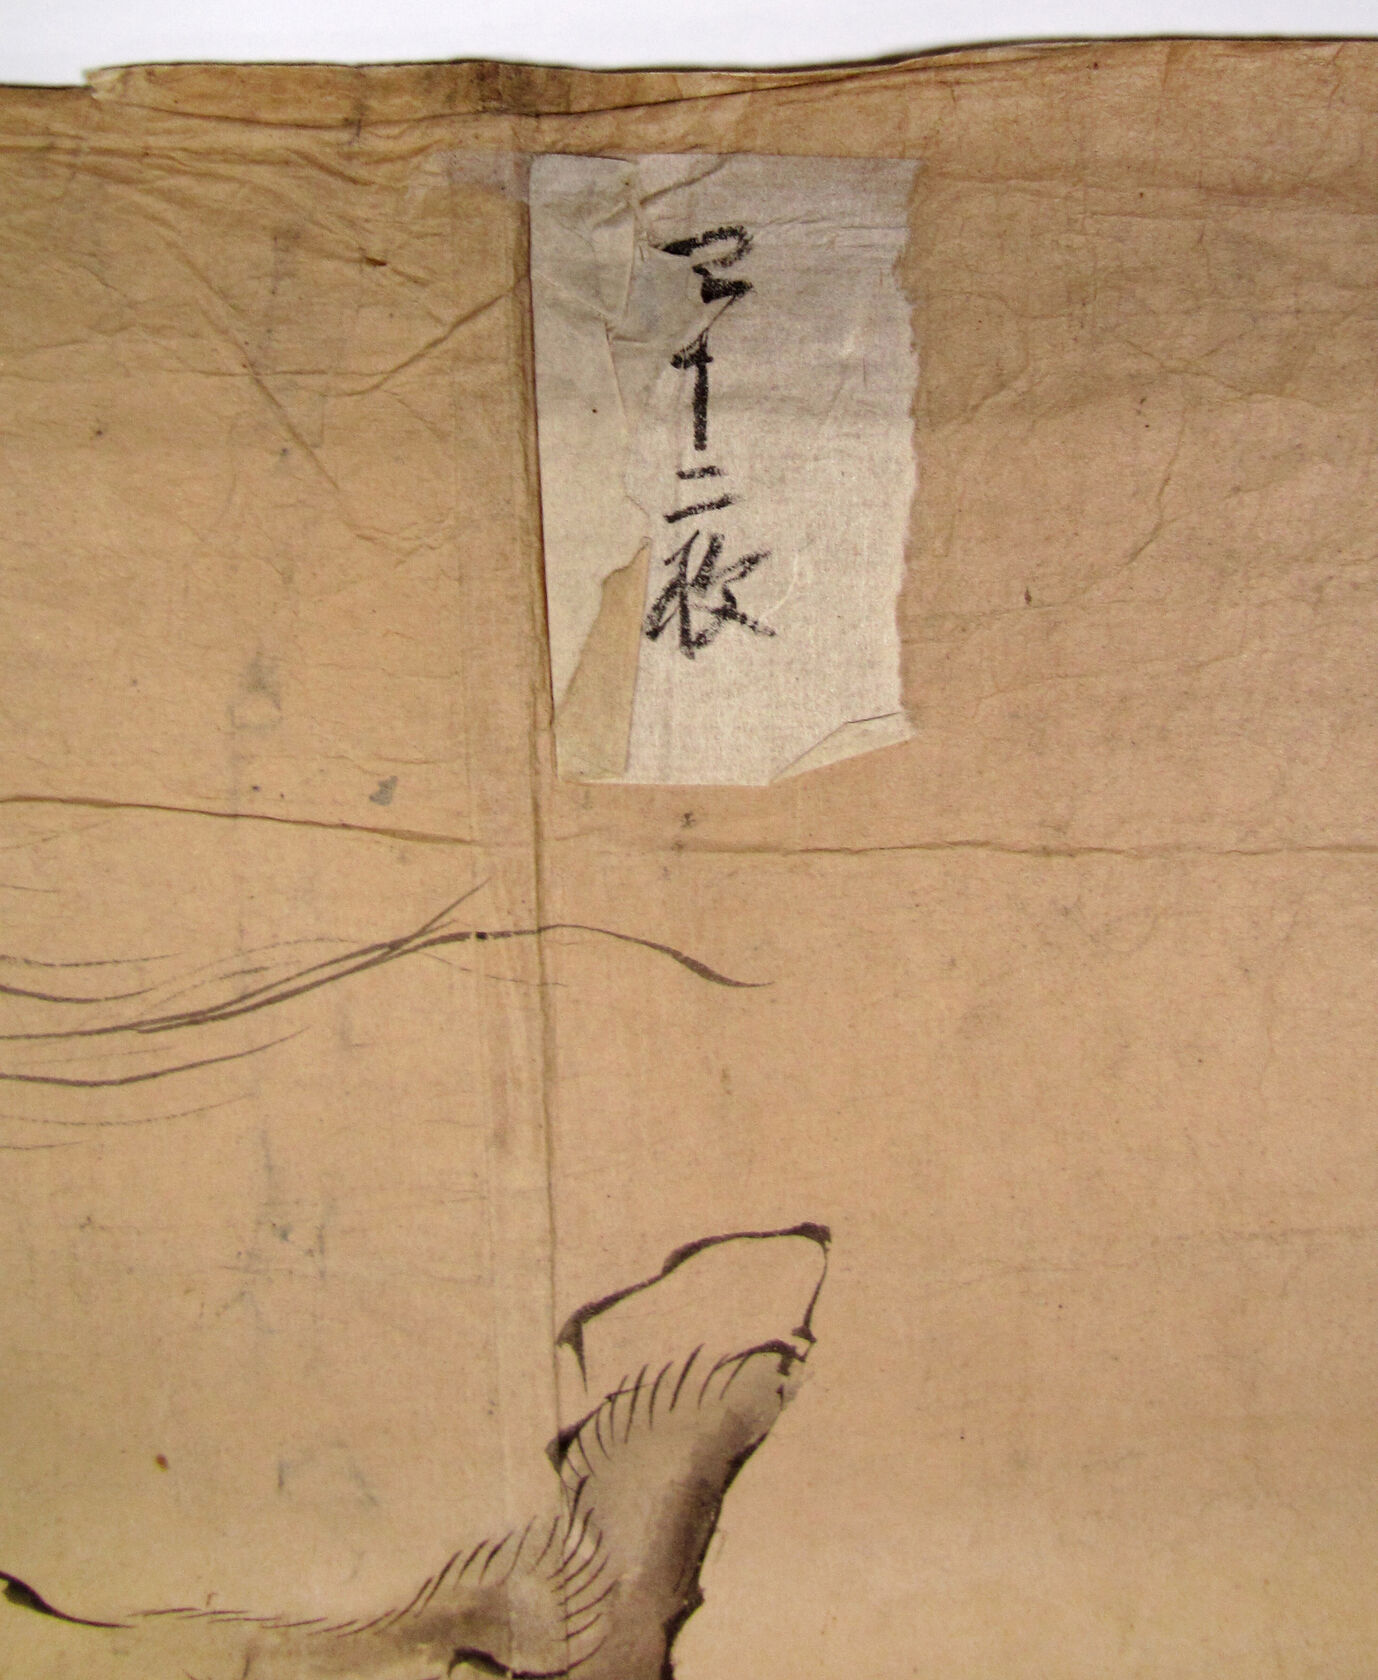 三十二枚